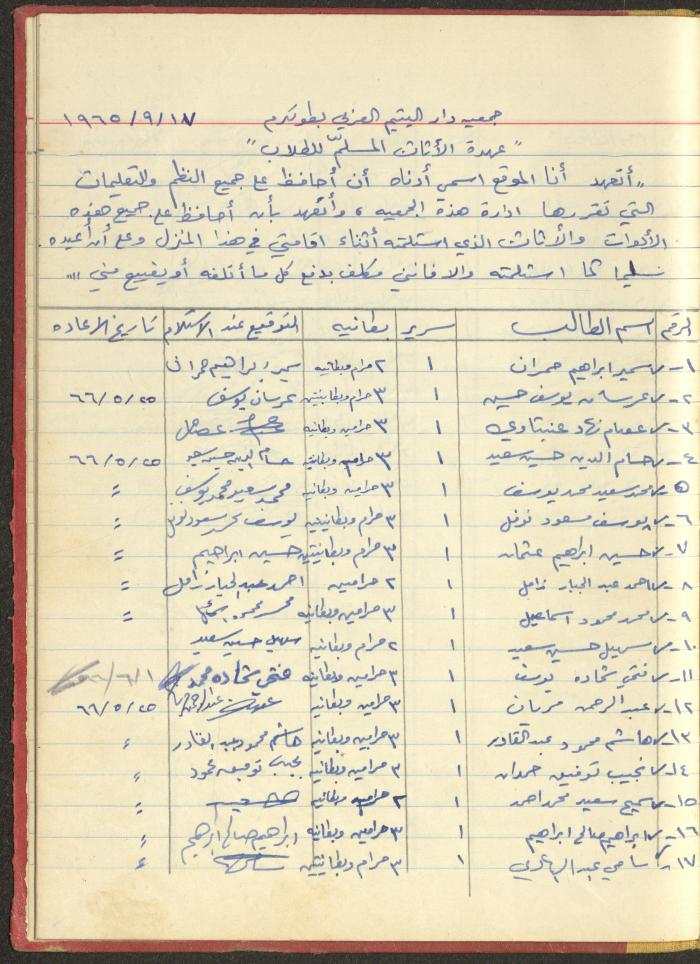 جمعيه دار اليتيم العربي بطولكرم ١٩٦٥/٩/١٧
"عهدة الأثاث المسلّم للطلاب"
"أتعهد أنا الموقع اسمي أدناه أن أحافظ على جميع النظم والتعليمات
التي تقررها ادارة هذه الجمعيه، وأتعهد بأن أحافظ على جميع هذه
الأدوات والأثاث الذي استلمته أثناء اقامتي في هذا المنزل وعلى أن أعيده
سليما كما استلمته والا فانني مكلف بدفع كل ما أتلفه أو يضيع مني"
الرقم اسم الطالب سرير بطانيه التوقيع عند الاستلام تاريخ الاعاده
١- سمير ابراهيم حمران ١ ٢ حرام وبطانيه سمير ابراهيم حمران
٢- عرسان يوسف حسين ١ ٣ حرام وبطانيتين عرسان يوسف ٦٦/٥/٢٥
٣- عصام نهاد عنبتاوي ١ ٣ حرامين وبطانيه عصام
٤- حسام الدين حسين سعيد ١ ٣ حرامين وبطانيه حسام الدين حسين سعيد ٦٦/٥/٢٥
٥- محمد سعيد محمد يوسف ١ ٣ حرامين وبطانيه محمد سعيد محمد يوسف =
٦- يوسف مسعود نوفل ١ ٣ حرام وبطانيتين يوسف مسعود نوفل =
٧- حسين ابراهيم عثمان ١ ٣ حرام وبطانيتين حسين ابراهيم =
٨- احمد عبد الجبار زامل ١ ٢ حرامين احمد عبد الجبار زامل =
٩- محمد محمود اسماعيل ١ ٣ حرامين وبطانيه محمد محمود =
١٠- سهيل حسين سعيد ١ ٢ حرام وبطانيه سهيل حسين سعيد
١١- فتحي شحاده يوسف ١ ٣ حرامين وبطانيه فتحي شحاده محمد ٦٦/٦/١
١٢- عبد الرحمن ١ ٣ حرامين وبطانيه عبد الرحمن ٦٦/٥/٢٥
١٣- هاشم محمود عبد القادر ١ ٣ حرامين وبطانيه هاشم محمود عبد القادر =
١٤- نجيب توفيق حمدان ١ ٣ حرامين وبطانيه نجيب توفيق محمود =
١٥- سميح سعيد محمد احمد ١ ٢ حرامين وبطانيه =
١٦- ابراهيم صالح ابراهيم ١ ٣ حرامين وبطانيه ابراهيم صالح ابراهيم =
١٧- سامي عبد الهادي ١ ٣ حرام وبطانيتين =